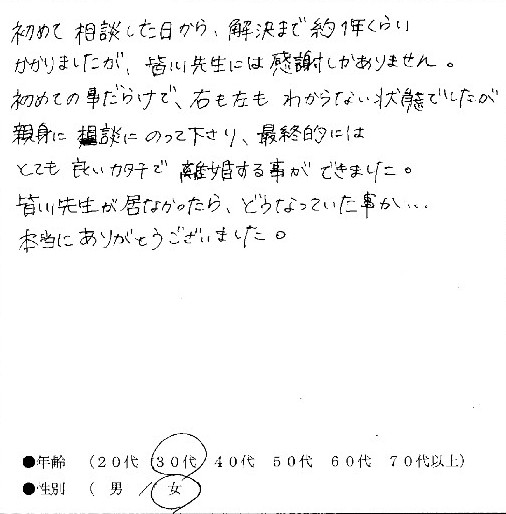 初めて 相談した日から、解決まで約1年くらい
かかりましたが、皆川先生には感謝しかありません。
初めての事だらけで、右も左も わからない状態でしたが
親身に 相談にのって下さり、最終的には
とても 良いカタチで 離婚する事ができました。
皆川先生が居なかったら、どうなっていた事か...
本当にありがとうございました。
●年齢 (20代 30代 40代 50代 60代 70代以上)
●性別 ( 男 / 女